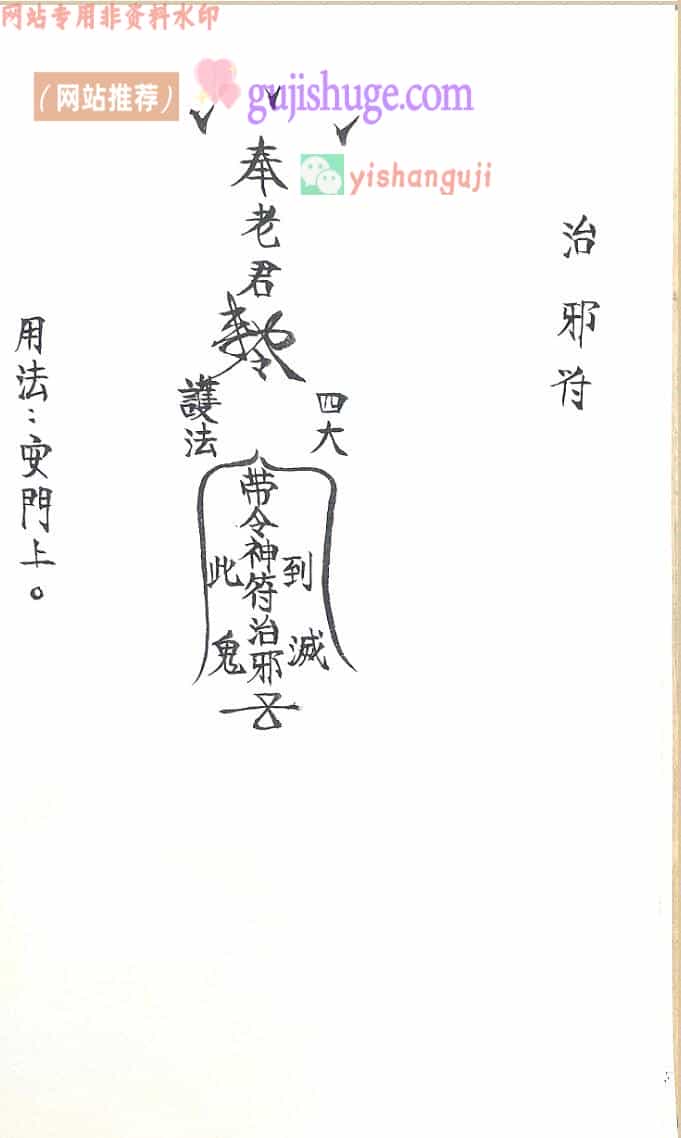 网站专用非资料水印
(网站推荐)
gujishuge.com
yishanguji
治邪符
奉老君敕令
四大
護法
带令神符治邪
到
此
滅
鬼
用法：安門上。